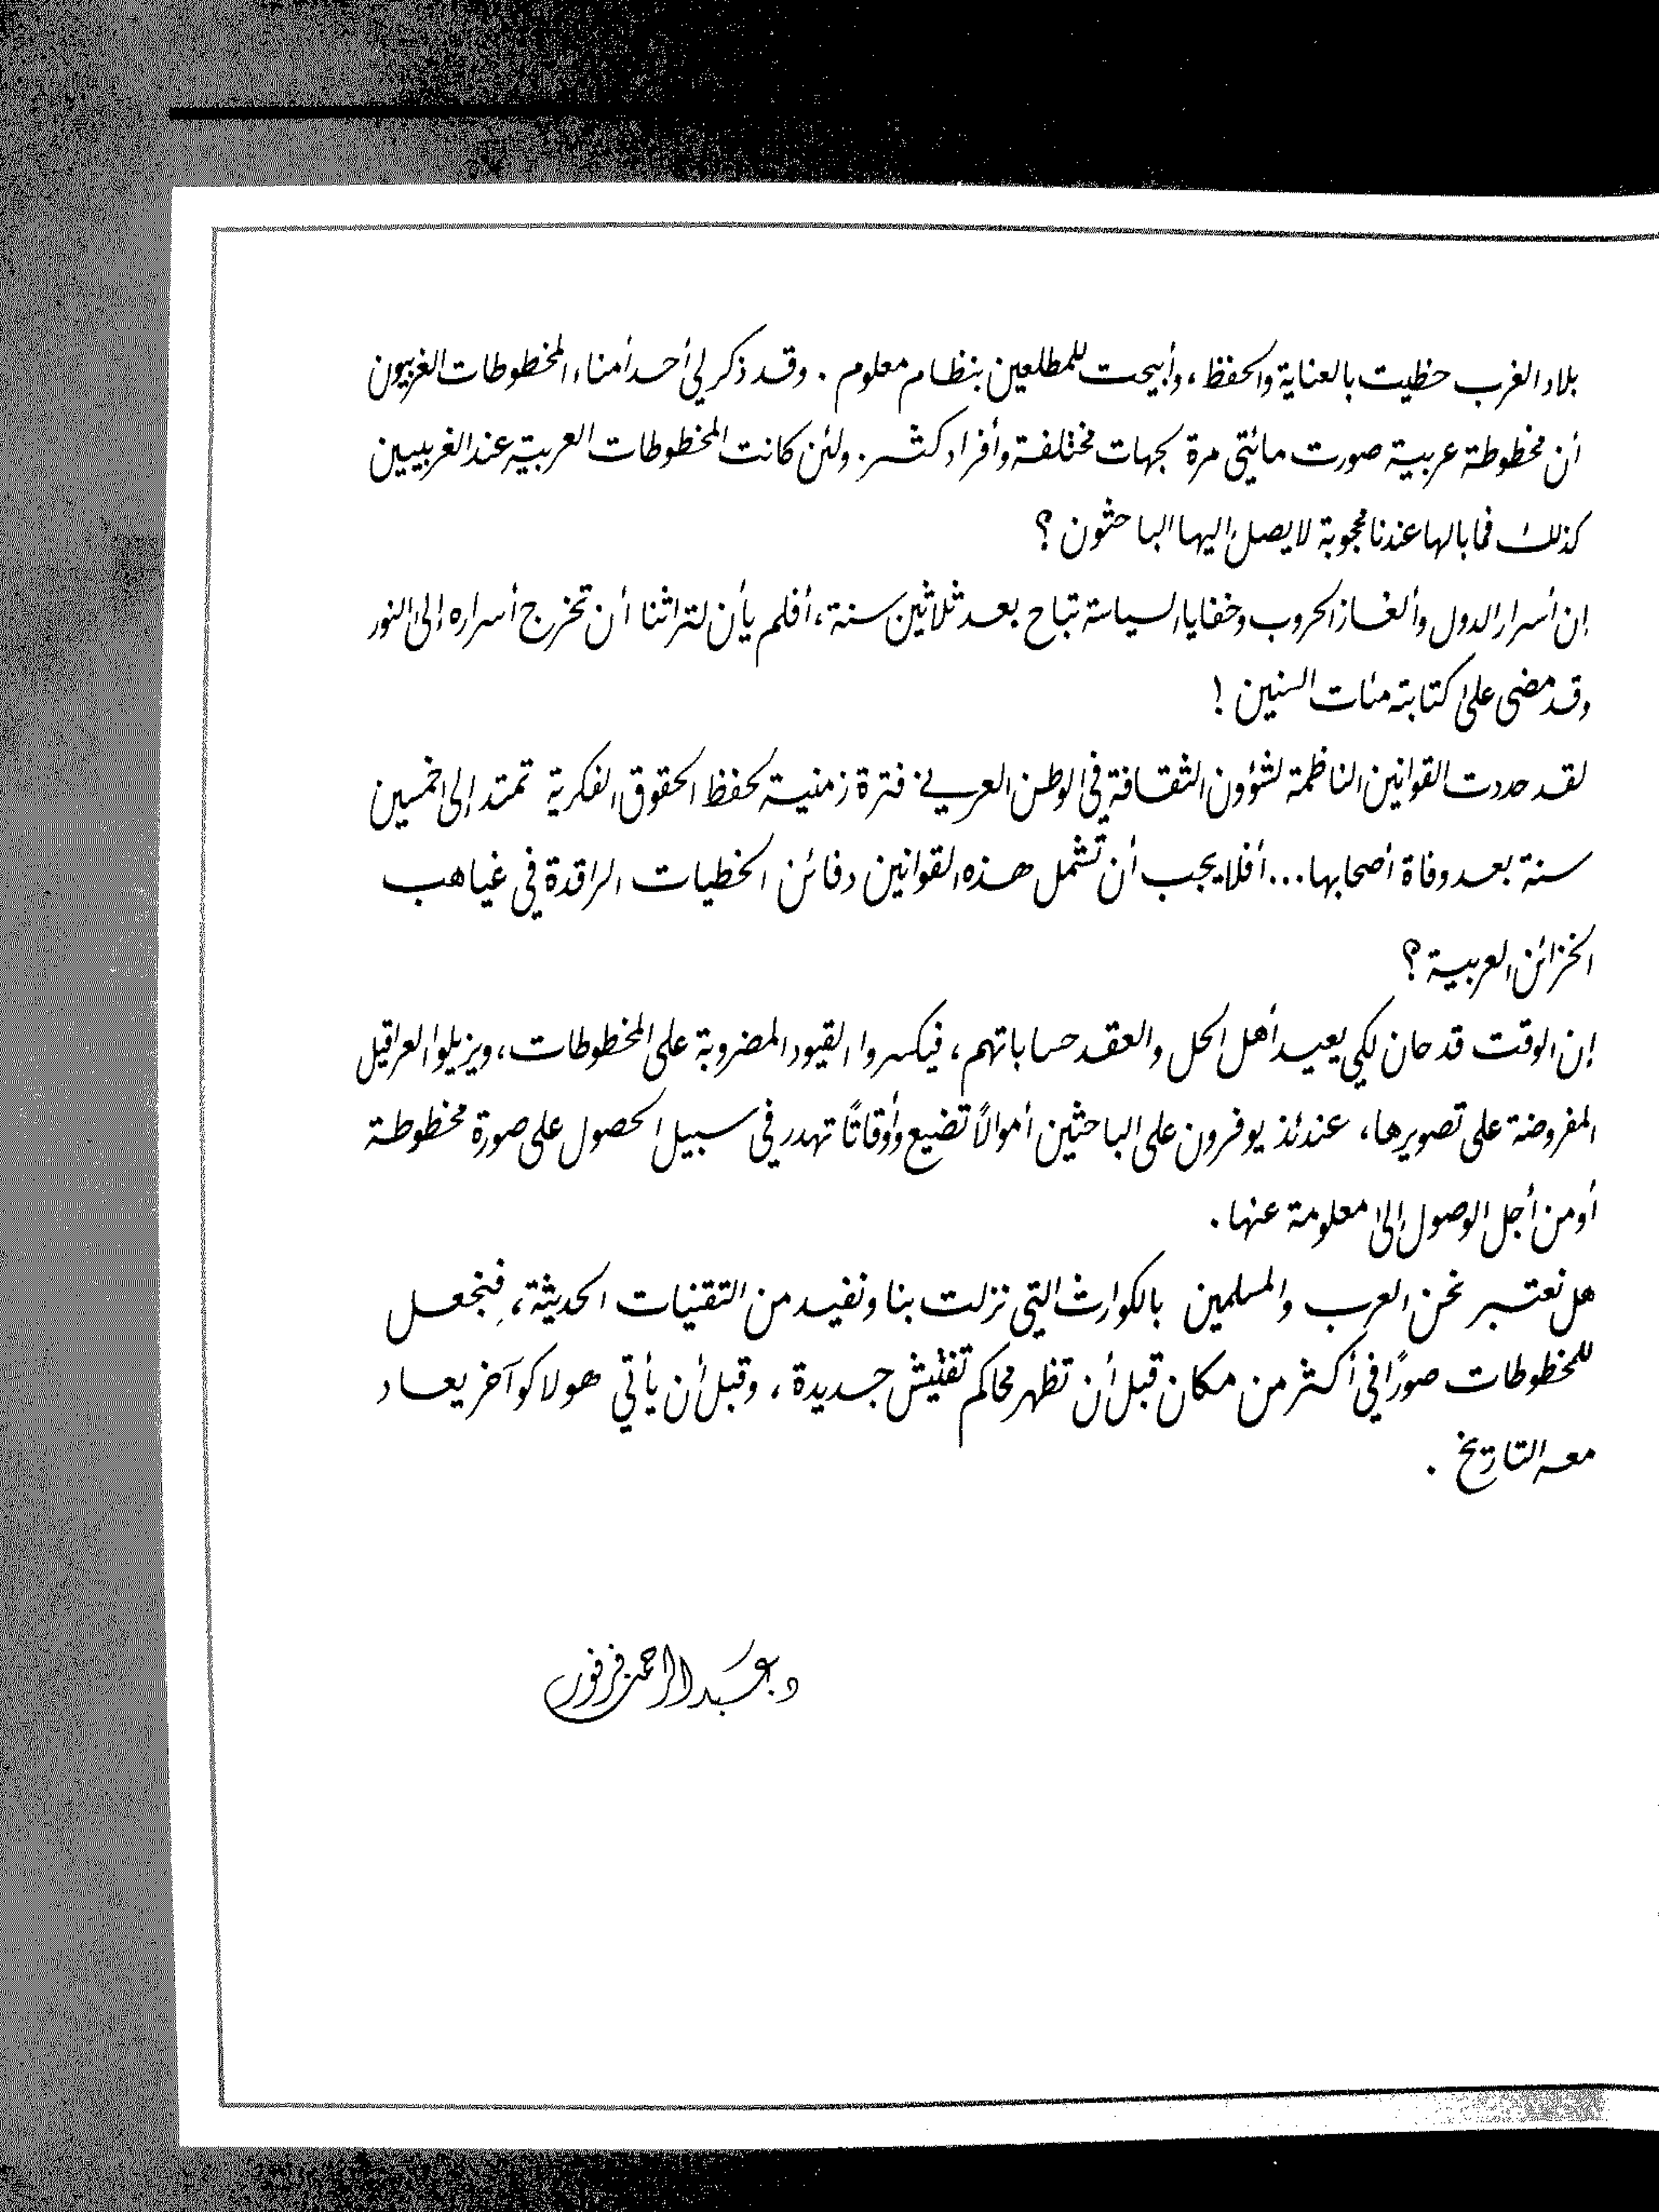 بلاد الغرب حظيت بالعناية والحفظ، وأبيحت للمطلعين بنظام معلوم. وقد ذكر لي أحد أمناء المخطوطات الغربيون
أن مخطوطة عربية صورت مائتي مرة لجهات مختلفة وأفراد كثر. ولئن كانت المخطوطات العربية عند الغربيين
كذلك فما بالها عندنا محجوبة لا يصل إليها الباحثون؟
إن أسرار الدول وألغاز الحروب وخفايا السياسة تباح بعد ثلاثين سنة، أفلم يأن لتراثنا أن تخرج أسراره إلى النور
وقد مضى على كتابته مئات السنين!
لقد حددت القوانين الناظمة لشؤون الثقافة في الوطن العربي فترة زمنية لحفظ الحقوق الفكرية تمتد إلى خمسين
سنة بعد وفاة أصحابها... أفلا يجب أن تشمل هذه القوانين دفائن الخطيات الراقدة في غياهب
الخزائن العربية؟
إن الوقت قد حان لكي يعيد أهل الحل والعقد حساباتهم، فيكسروا القيود المضروبة على المخطوطات، ويزيلوا العراقيل
المفروضة على تصويرها، عندئذ يوفرون على الباحثين أموالاً تضيع وأوقاتاً تهدر في سبيل الحصول على صورة مخطوطة
أو من أجل الوصول إلى معلومة عنها.
هل نعتبر نحن العرب والمسلمين بالكوارث التي نزلت بنا ونفيد من التقنيات الحديثة، فنجعل
للمخطوطات صورًا في أكثر من مكان قبل أن تظهر محاكم تفتيش جديدة، وقبل أن يأتي هولاكو آخر يعاد
معه التاريخ.
د. عبد الرحمن فرفور